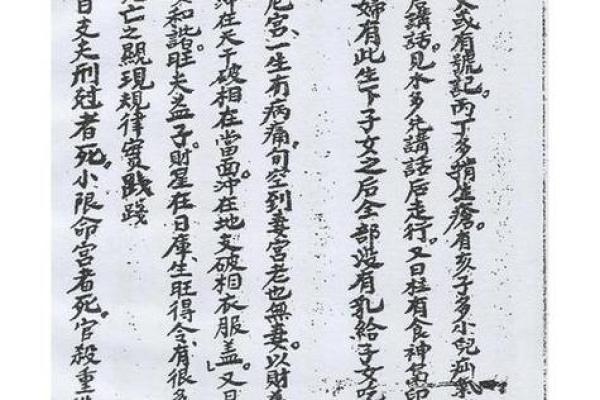 或有號記。丙丁多猖生瘡。有亥子多小兒疝氣
后講話。見水多先講話后走行。又日柱有食神傷印
婦有此生下子女之后全部没有乳給子女吃
宫、一生有病痛。旬空到妻宫老也無妻。以財為
冲在天干破相在當面。冲在地支破相衣服盖。」又日
和諧。旺夫益子。財星在日庫。生旺得令。有很多
亡之顯現規律實踐踐
日支夫刑尅者死。小限命宫者死。官殺重